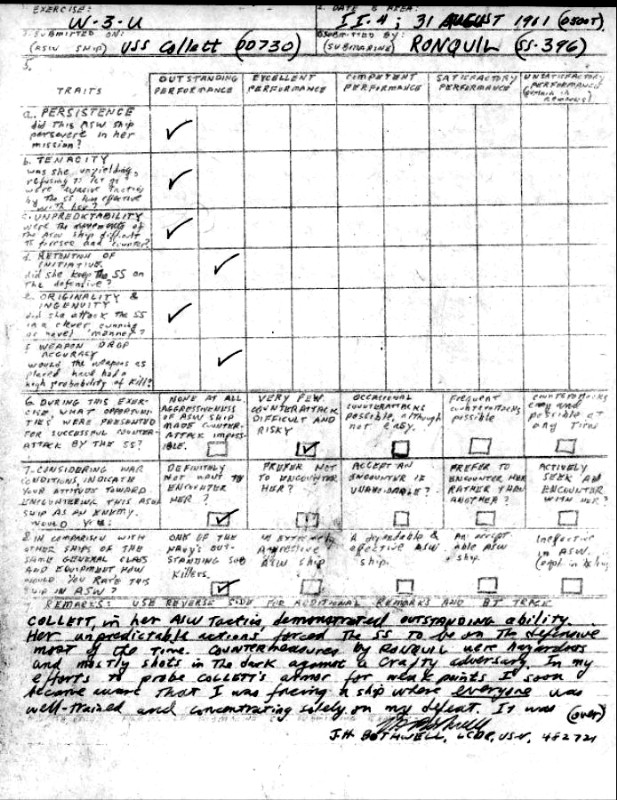 EXERCISE: W-3-U
2. DATE & AREA: II.4; 31 AUGUST 1961
3. SUBMITTED ON: (ASW SHIP) USS Collett (DD730)
SUBMITTED BY: (SUBMARINE) RONQUIL (SS-396)
5.
TRAITS
OUTSTANDING PERFORMANCE
EXCELLENT PERFORMANCE
COMPETENT PERFORMANCE
SATISFACTORY PERFORMANCE
UNSATISFACTORY PERFORMANCE
a. PERSISTENCE
did this ASW ship
persevere in her
mission?
b. TENACITY
was she unyielding,
refusing to let go?
were evasive tactics
by the SS
c. UNPREDTABILITY
were the movements of
the ASW ship difficult
to forsee and counter?
d. RETENTION OF
INITIATIVE
did she keep the SS on
the defensive?
e. ORIGINALITY &
INGENUITY
did she attack the SS
in a clever, cunning
or novel manner?
f. WEAPON DROP
ACCURACY
would the weapons as
placed have had a
high probability of kill?
6. DURING THIS EXER-
CISE, WHAT OPPORTUNI-
TIES WERE PRESENTED
FOR SUCCESSFUL COUNTER-
ATTACK BY THE SS?
NONE AT ALL
AGGRESSIVENESS
OF ASW SHIP
MADE COUNTER-
ATTACK
VERY FEW.
COUNTERATTACK
DIFFICULT AND
RISKY
OCCASIONAL
counterattacks
possible, although
not easy.
frequent
counterattacks
possible
counterattacks
easy and
possible at
any time
7. CONSIDERING WAR
CONDITIONS, INDICATE
YOUR ATTITUDE TOWARD
ENCOUNTERING THIS ASW
SHIP AS AN ENEMY.
WOULD YOU:
DEFINITELY
NOT WANT TO
ENCOUNTER
HER?
PREFER NOT
TO ENCOUNTER
HER?
ACCEPT AN
ENCOUNTER IF
UNAVOIDABLE?
PREFER TO
ENCOUNTER HER
RATHER THAN
ANOTHER?
ACTIVELY
SEEK AN
ENCOUNTER
WITH HER?
8. IN COMPARISON WITH
OTHER SHIPS OF THE
SAME GENERAL CLASS
AND EQUIPMENT HOW
WOULD YOU RATE THIS
SHIP IN ASW?
ONE OF THE
NAVY'S OUT-
STANDING SUB
Killers.
ASW ship
A dependable &
effective ASW
ship.
An accept-
able ASW
ship.
Ineffective
in ASW.
REMARKS: USE REVERSE SIDE FOR ADDITIONAL REMARKS AND BT TRACE
COLLETT, in her ASW tactics, demonstrated OUTSTANDING ability.
Her unpredictable actions forced the SS to be on the defensive
most of the time. COUNTERMEASURES by RONQUIL were hazardous
and mostly shots in the dark against a crafty adversary. In my
efforts to probe COLLETT'S armor for weak points I soon
became aware that I was facing a ship where everyone was
well-trained and concentrating solely on my defeat. It was (over)
J.H. BOTHWELL, LCDR, USN,